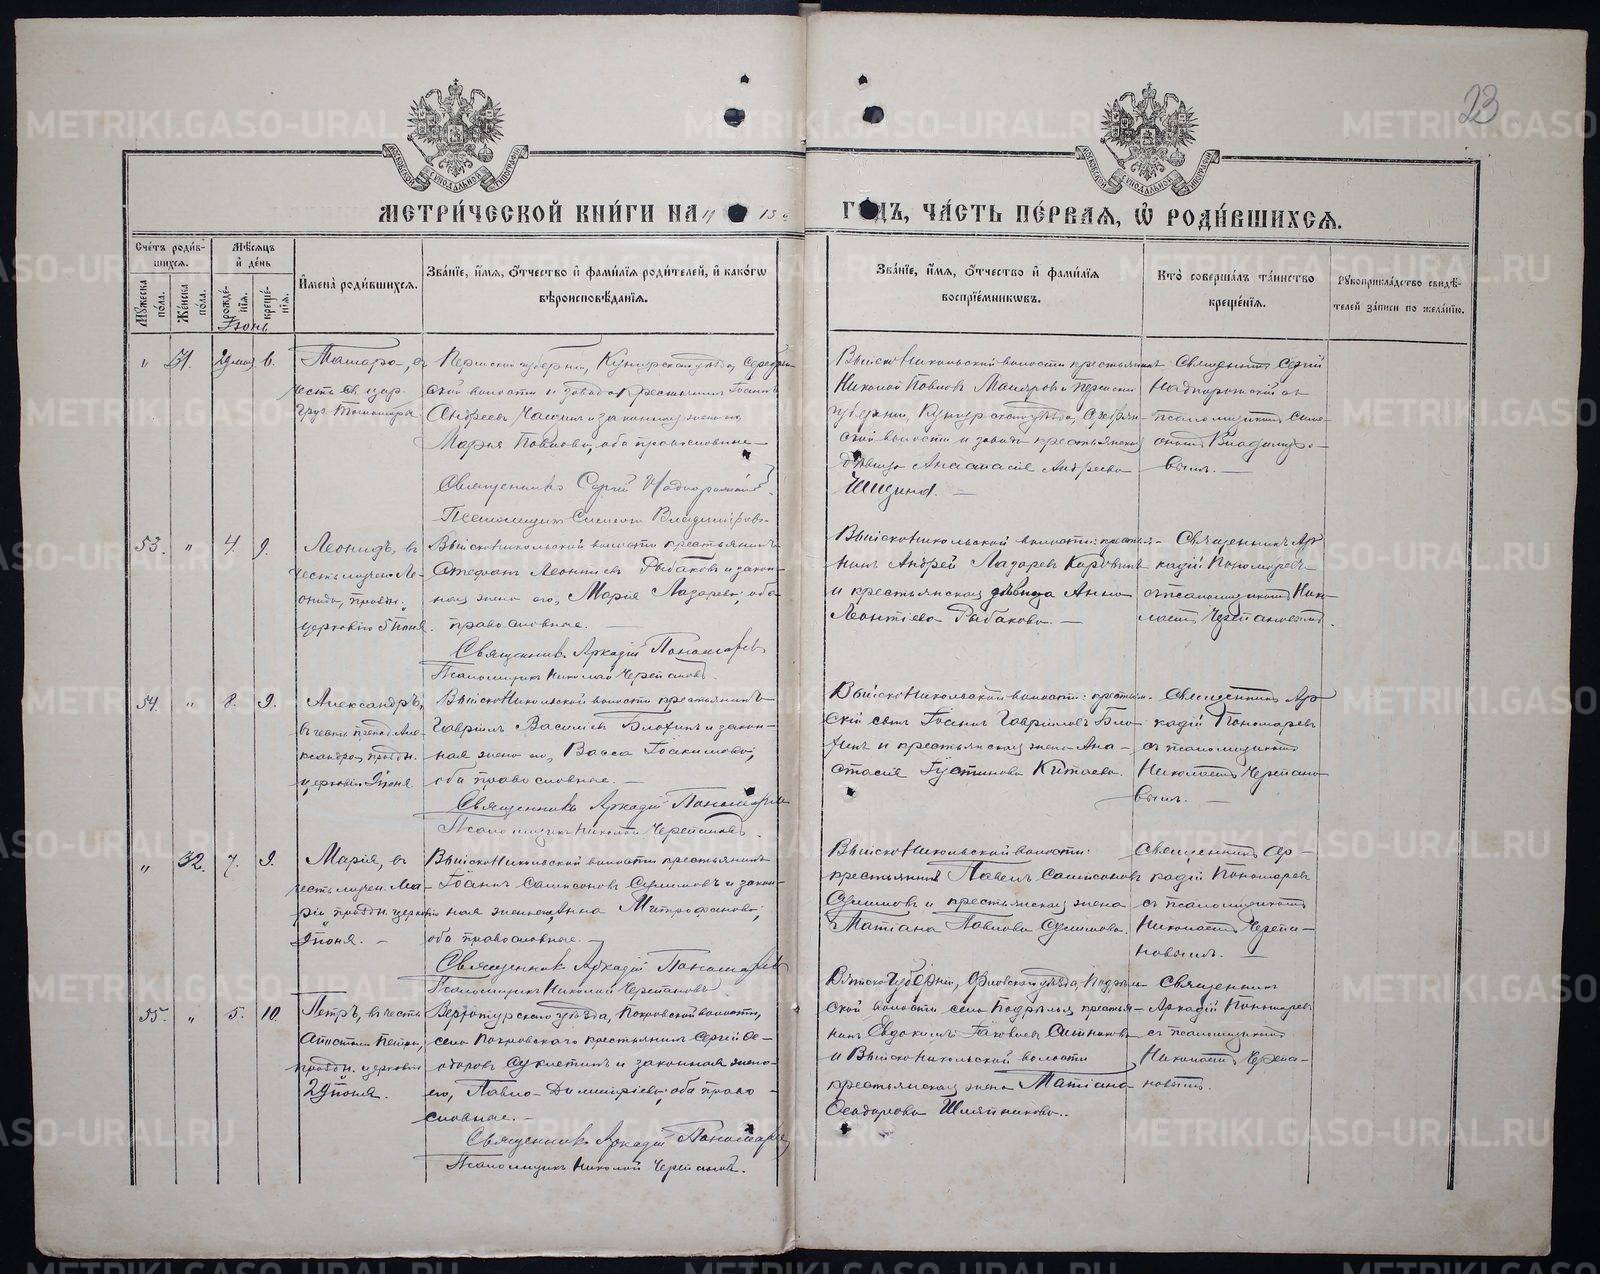 23
МЕТРИ́ЧЕСКОЙ КНИ́ГИ НА 1913
ГО́ДЪ, ЧА́СТЬ ПЕ́РВАЯ, Ѽ РОДИ́ВШИХСЯ.
Сче́тъ роди́в-
шихся.
Му́жеска по́ла.
Же́нска по́ла.
Мѣ́сяцъ и҆ де́нь
рожде́нїя.
креще́нїя.
И҆мена̀ роди́вшихся.
Зва́нїе, и҆́мя, ѻ҆́тчество и҆ фами́лїя роди́телей, и҆ како́гѡ
вѣроисповѣ́данїя.
Зва́нїе, и҆́мя, ѻ҆́тчество и҆ фами́лїя
воспрїе́мникѡвъ.
Кто̀ соверша́лъ та́инство
креще́нїя.
Рꙋкоприкла́дство свидѣ́-
телей за́писи по жела́нїю.
Іюнь
" 31. 29 мая 6.
Тамара, въ
честь св. цар.
Груз. Тамары
Пермской губерніи, Кунгурскаго уѣзда,
ской волости и завода крестьянинъ Іоаннъ
Андреевъ и законная жена его
Марія Павлова, оба православные.
Священникъ Сергій
Псаломщикъ Симеонъ
Выйско-Никольской волости крестьянинъ
Николай Павловъ и Пермской
губерніи, Кунгурскаго уѣзда,
ской волости и завода крестьянская
дѣвица Анастасія Андреева
Священникъ Сергій
съ
псаломщикомъ Симе-
ономъ Владиміро-
вымъ.
53. " 4. 9.
Леонидъ, въ
честь мучен. Ле-
онида, праздн.
церковію 5 Іюня.
Выйско-Никольской волости крестьянинъ
Стефанъ Леонтіевъ Рыбаковъ и закон-
ная жена его, Марія Лазарева, оба
православные.
Священникъ Аркадій Пономаревъ
Псаломщикъ Николай Черепановъ.
Выйско-Никольской волости: крестья-
нинъ Андрей Лазаревъ
и крестьянская дѣвица Анна
Леонтіева Рыбакова.
Священникъ Ар-
кадій Пономаревъ
съ псаломщикомъ Нико-
лаемъ Черепановымъ.
54. " 8. 9.
Александръ,
въ честь препод. Але-
ксандра, праздн.
церковію 9 Іюня
Выйско-Никольской волости крестьянинъ
Гавріилъ Васильевъ Блохинъ и закон-
ная жена его, Васса Іоакимова,
оба православные.
Священникъ Аркадій Пономаревъ
Псаломщикъ Николай Черепановъ.
Выйско-Никольской волости: крестьян-
скій сынъ Іоаннъ Гавріиловъ Бло-
хинъ и крестьянская жена Ана-
стасія Іустинова Китаева.
Священникъ Ар-
кадій Пономаревъ
съ псаломщикомъ
Николаемъ Черепано-
вымъ.
" 32. 7. 9.
Марія, въ
честь мучен. Ма-
ріи, праздн. церковію
9 Іюня.
Выйско-Никольской волости крестьянинъ
Іоаннъ Самсоновъ Сулимовъ и закон-
ная жена его, Анна Митрофанова,
оба православные.
Священникъ Аркадій Пономаревъ
Псаломщикъ Николай Черепановъ.
Выйско-Никольской волости:
крестьянинъ Павелъ Самсоновъ
Сулимовъ и крестьянская жена
Татіана Павлова Сулимова.
Священникъ Ар-
кадій Пономаревъ
съ псаломщикомъ
Николаемъ Черепа-
новымъ.
55. " 5. 10.
Петръ, въ честь
Апостола Петра,
праздн. церковію
29 Іюня.
Верхотурскаго уѣзда, Покровской волости,
села Покровскаго крестьянинъ Сергій Ѳе-
одоровъ и законная жена
его, Павла Димитріева, оба право-
славные.
Священникъ Аркадій Пономаревъ
Псаломщикъ Николай Черепановъ.
Вятской губерніи, Орловскаго уѣзда,
ской волости села крестья-
нинъ Евдокимъ Іаковлевъ
и Выйско-Никольской волости
крестьянская жена Татіана
Ѳеодорова Шляпникова.
Священникъ
Аркадій Пономаревъ
съ псаломщикомъ
Николаемъ Черепа-
новымъ.